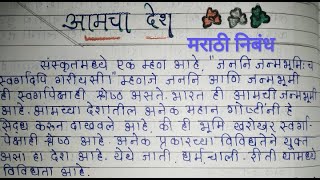 आमचा देश
मराठी निबंध
संस्कृतमध्ये एक म्हण आहे, "जननि जन्मभूमि: च
स्वर्गादपि गरीयसी।" म्हणजे जननि आणि जन्मभूमी
ही स्वर्गापेक्षाही श्रेष्ठ असते. भारत ही आमची जन्मभूमी
आहे. आमच्या देशातील अनेक महान गोष्टींनी हे
सिद्ध करून दाखवले आहे, की ही भूमि खरोखर स्वर्गा-
पेक्षाही श्रेष्ठ आहे. अनेक प्रकारच्या विविधतेने युक्त
असा हा देश आहे. येथे जाती, धर्म, चाली, रीती यामध्ये
विविधता आहे.